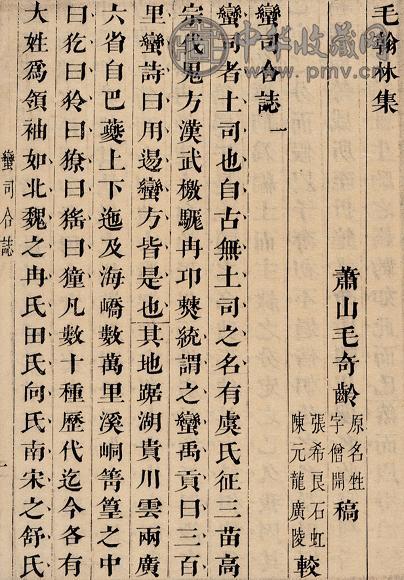 毛翰林集
蕭山毛奇齡 原名甡 字僧開 稿
張希良石虹
陳元龍廣陵 較
蠻司合誌一
蠻司者土司也自古無土司之名有虞氏征三苗高
宗伐鬼方漢武檄駹冉卭僰統謂之蠻禹貢曰三百
里蠻詩曰用逷蠻方皆是也其地踞湖貴川雲兩廣
六省自巴夔上下迤及海嶠數萬里溪峒箐篁之中
曰犵曰狑曰獠曰猺曰獞凡數十種歷代迄今各有
大姓爲領袖如北魏之冉氏田氏向氏南宋之舒氏
蠻司合誌
一
中华收藏网
www.pmv.cn